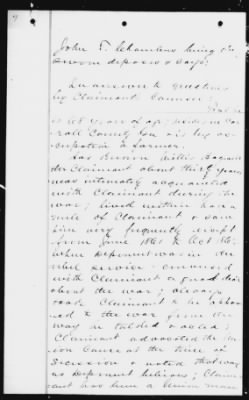 John T. Chambers being duly
sworn deposes & says:
In answer to questions
by Claimants Counsel;
is 48 years of age; resides in Car
roll County Ga & is by oc-
cupation a farmer.
Has known Willis
der Claimant about thirty years
was intimately acquainted
with Claimant during the
war; lived within half a
mile of Claimant & saw
him very frequently except
from June 1861 to Oct 186
when Deponent was in the
rebel service - conversed
with Claimant a good deal
about the war; always
took Claimant to be oppos
ed to the war from the
way he talked & acted;
Claimant advocated the Un
ion Cause at the time of
Secession & voted that way
as Deponent believes; Claim
ant has been a Union man